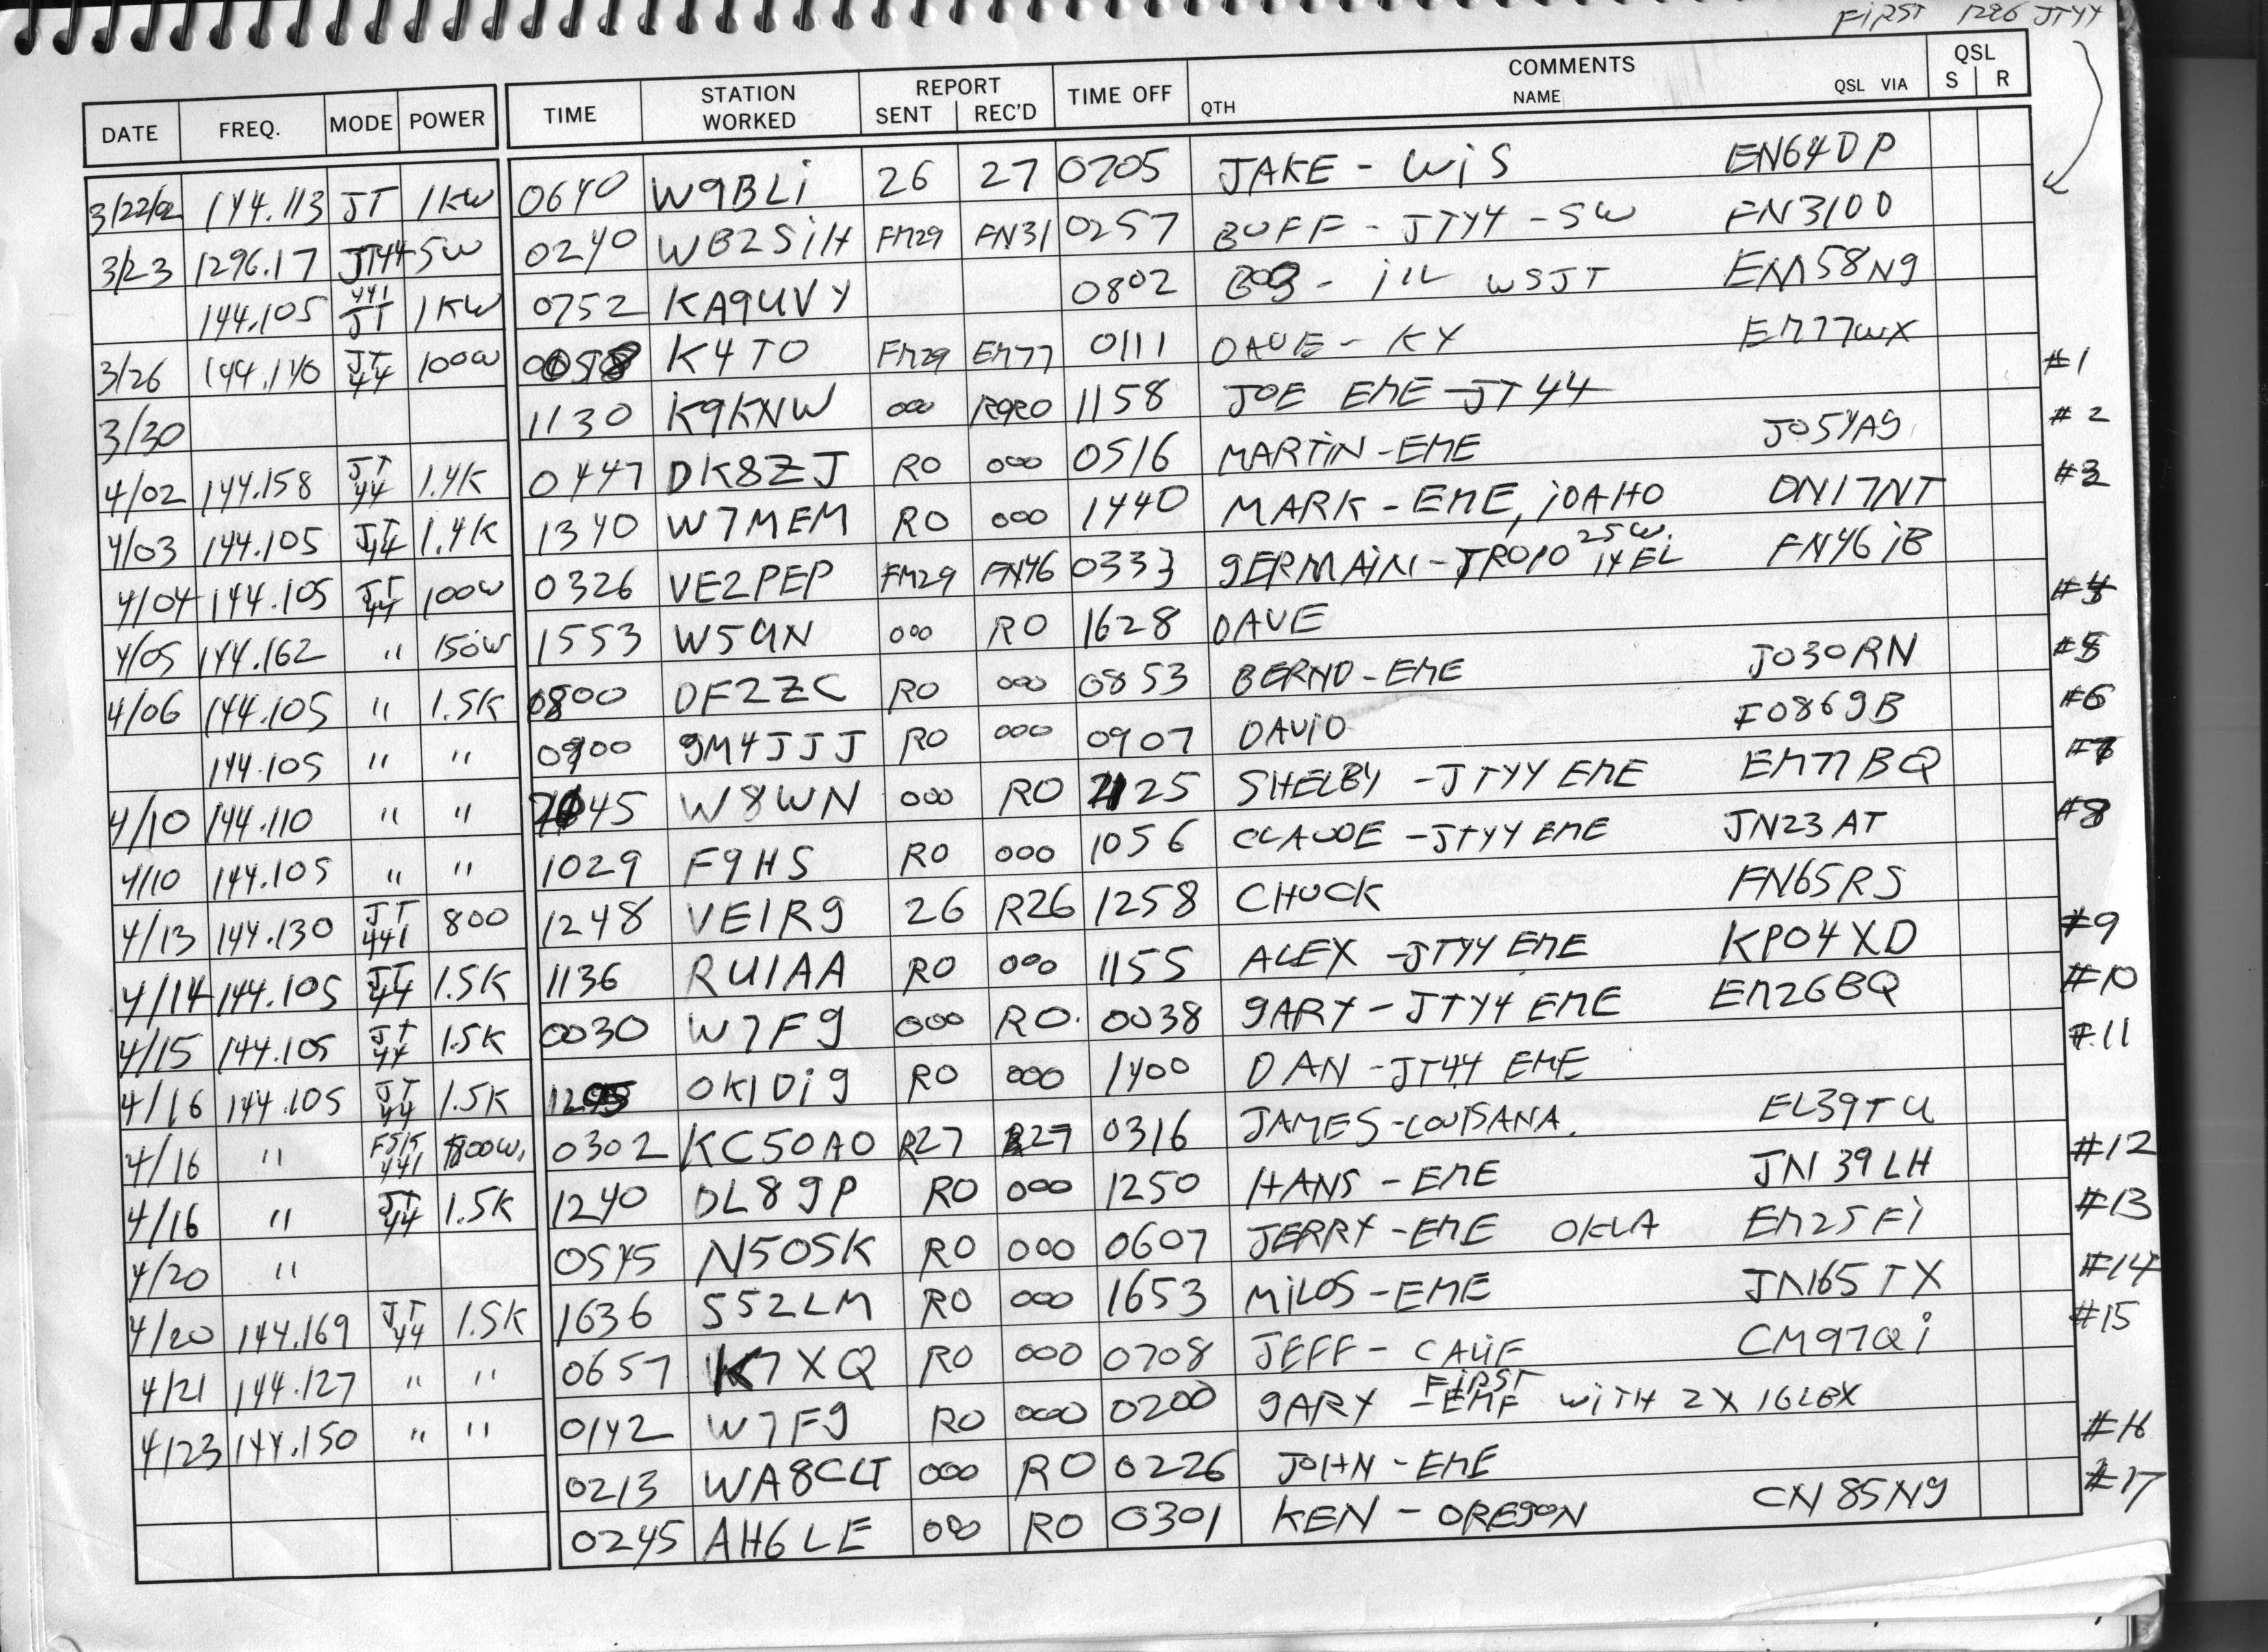 FIRST 1296 JT44
DATE FREQ. MODE POWER TIME STATION WORKED REPORT SENT REC'D TIME OFF COMMENTS QTH NAME QSL VIA QSL S R
3/22/02 144.113 JT 1KW 0640 W9BLi 26 27 0705 JAKE - WiS EN64DP
3/23 1296.17 JT44 5W 0240 WB2SiH FM29 FN31 0257 BUFF - JT44 - 5W FN31OD
144.105 441 JT 1KW 0752 KA9UVY 0802 BOB - iLL WSJT EM58Ng
3/26 144.140 JT 44 100W 0058 K4TO FM29 EM77 0111 DAVE - KY EM77WX
3/30 1130 K9KNW ooo RORO 1158 JOE EME - JT44 #1
4/02 144.158 JT 44 1.4K 0447 DK8ZJ RO ooo 0516 MARTiN - EME JO54Ag #2
4/03 144.105 JT 44 1.4K 1340 W7MEM RO ooo 1440 MARK - EME, iDAHO DN17NT #3
4/04 144.105 JT 44 100W 0326 VE2PEP FM29 FN46 0333 gERMAiN - TROPO 25W. 14EL FN46iB
4/05 144.162 " 150W 1553 W5UN ooo RO 1628 DAVE #4
4/06 144.105 " 1.5K 0800 DF2ZC RO ooo 0853 BERND - EME JO30RN #5
144.105 " " 0900 gM4JJJ RO ooo 0907 DAViD IO86gB #6
4/10 144.110 " " 45 W8WN ooo RO 2125 SHELBY - JT44 EME EM77BQ #7
4/10 144.105 " " 1029 F9HS RO ooo 1056 CLAUDE - JT44 EME JN23AT #8
4/13 144.130 JT 441 800 1248 VE1Rg 26 R26 1258 CHUCK FN65RS
4/14 144.105 JT 44 1.5K 1136 RU1AA RO ooo 1155 ALEX - JT44 EME KP04XD #9
4/15 144.105 JT 44 1.5K 0030 W7Fg ooo RO. 0038 gARY - JT44 EME EM26BQ #10
4/16 144.105 JT 44 1.5K OK1Dig RO ooo 1400 DAN - JT44 EME #11
4/16 " 441 800W. 0302 KC5OAO R27 R27 0316 JAMES - LOUiSANA. EL39TU
4/16 " JT 44 1.5K 1240 DL8gP RO ooo 1250 HANS - EME JN39LH #12
4/20 " 0545 N5OSK RO ooo 0607 JERRY - EME OKLA EM25Fi #13
4/20 144.169 JT 44 1.5K 1636 S52LM RO ooo 1653 MiLOS - EME JN165TX #14
4/21 144.127 " " 0657 K7XQ RO ooo 0708 JEFF - CALiF CM97Qi #15
4/23 144.150 " " 0142 W7Fg RO ooo 0200 gARY - FiRST EME WiTH 2X16LBX
0213 WA8CLT ooo RO 0226 JOHN - EME #16
0245 AH6LE ooo RO 0301 KEN - OREgON CN85Ng #17